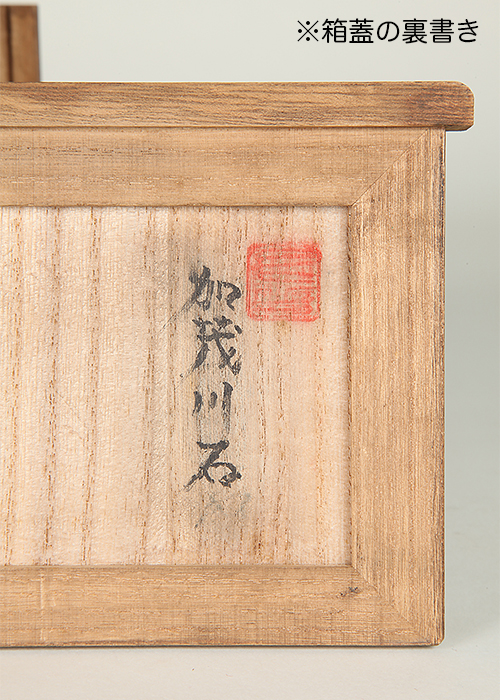 ※箱蓋の裏書き
加茂川石